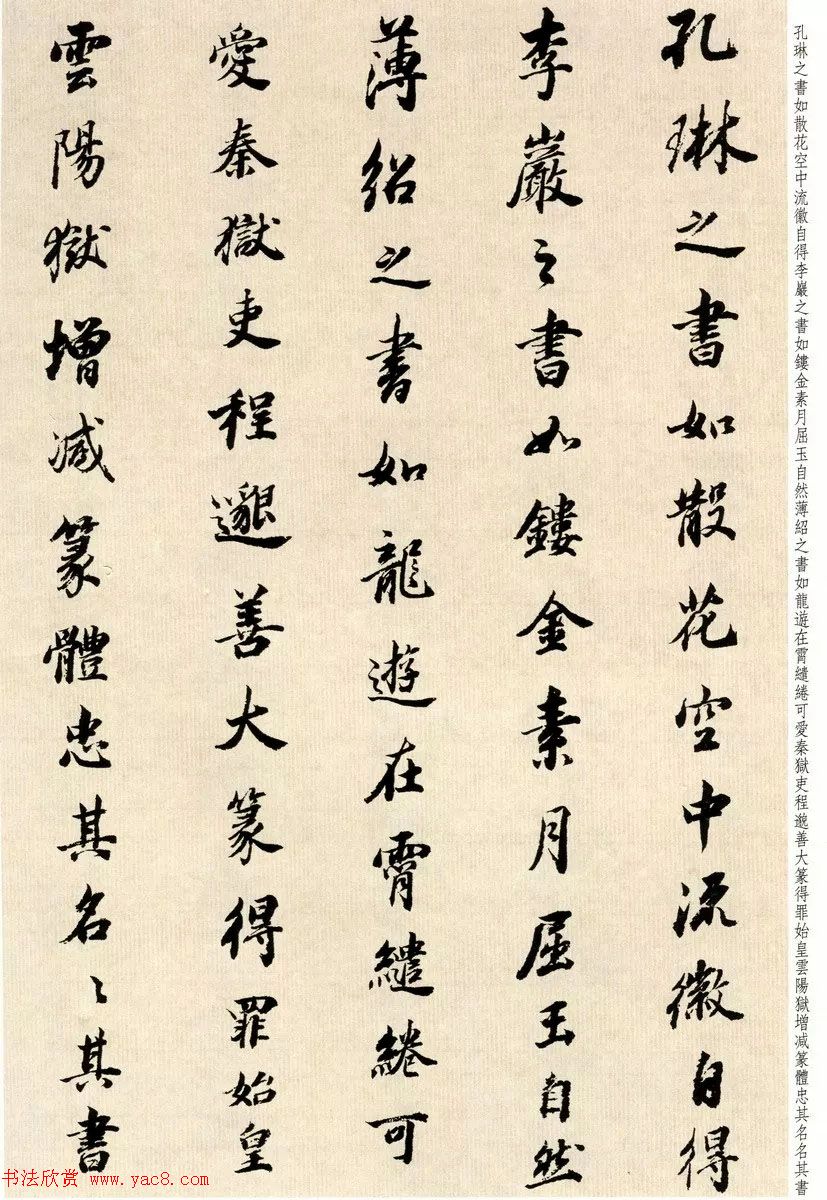 孔琳之書如散花空中流徽自得
李巖之書如鏤金素月屈玉自然
薄紹之書如龍遊在霄繾綣可
愛秦獄吏程邈善大篆得罪始皇
雲陽獄增減篆體忠其名〻其書
孔琳之書如散花空中流徽自得李巖之書如鏤金素月屈玉自然薄紹之書如龍遊在霄繾綣可愛秦獄吏程邈善大篆得罪始皇雲陽獄增減篆體忠其名名其書
书法欣赏 www.yac8.com